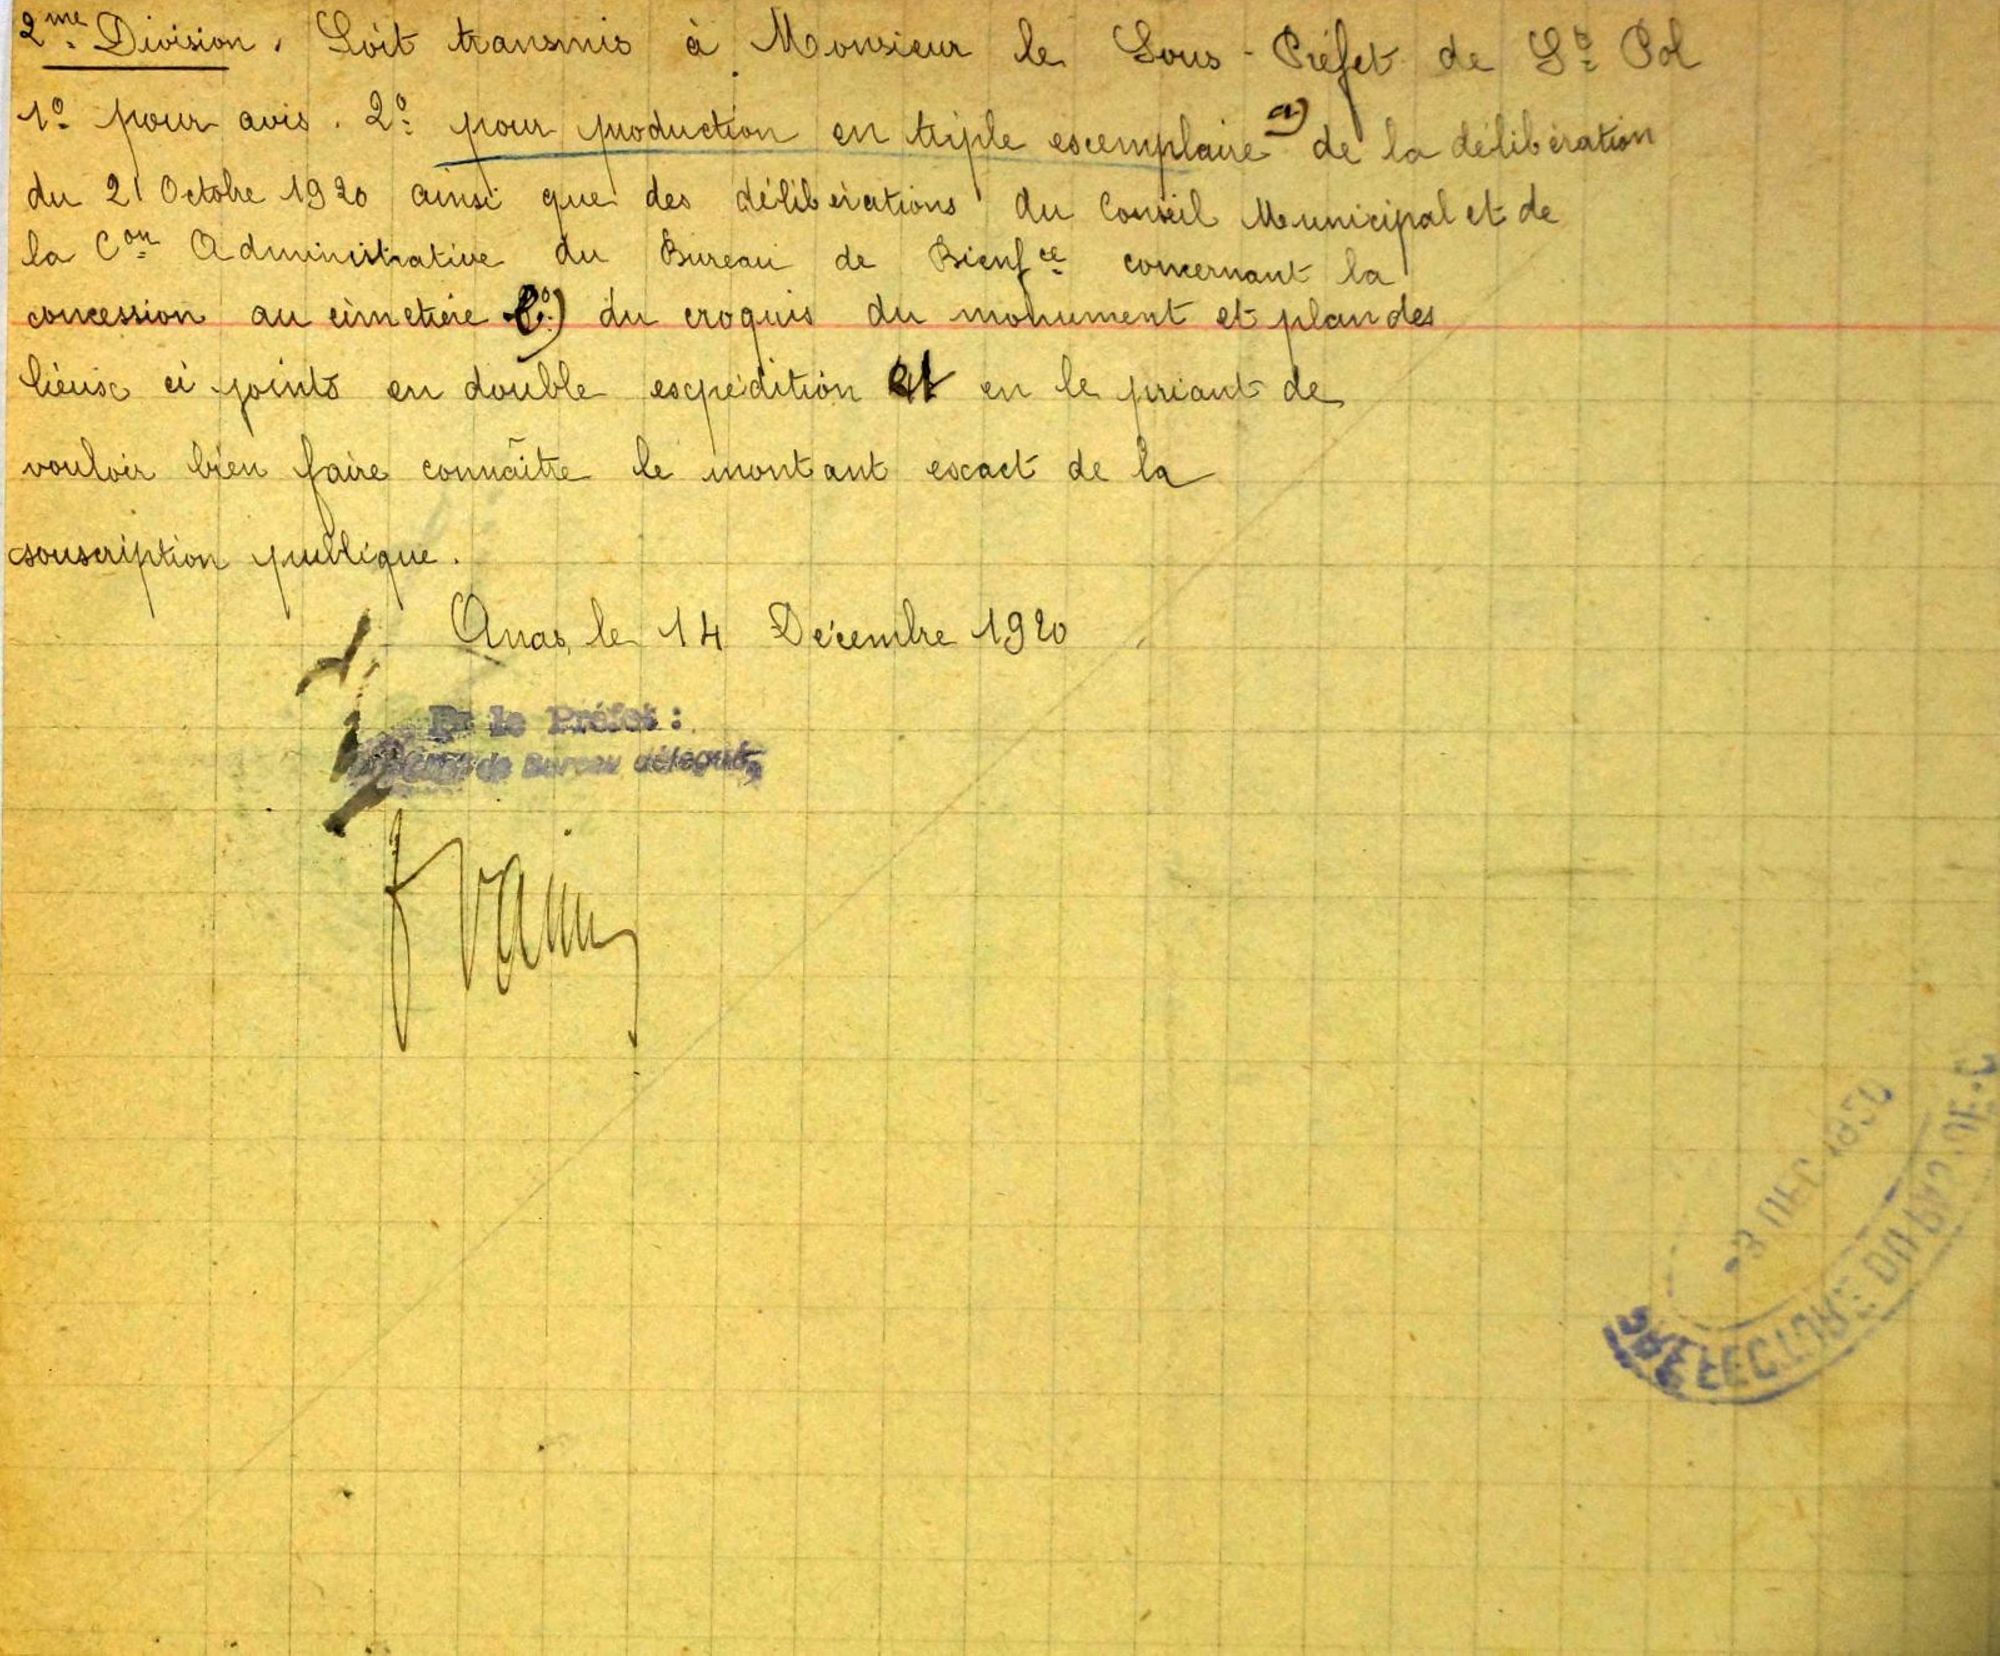 2me Division. Soit transmis à Monsieur le Sous-Préfet de St Pol
1o pour avis. 2o pour production en triple exemplaire a) de la délibération
du 21 Octobre 1920 ainsi que des délibérations du Conseil Municipal et de
la Con Administrative du Bureau de Bienfce concernant la
concession au cimetière b) du croquis du monument et plan des
lieux ci joints en double expédition et en le priant de
vouloir bien faire connaître le montant exact de la
souscription publique.
Arras, le 14 Décembre 1920
Pr le Préfet:
de Bureau délégué,
PREFECTURE DU PAS-DE-C
-3 DEC 1920